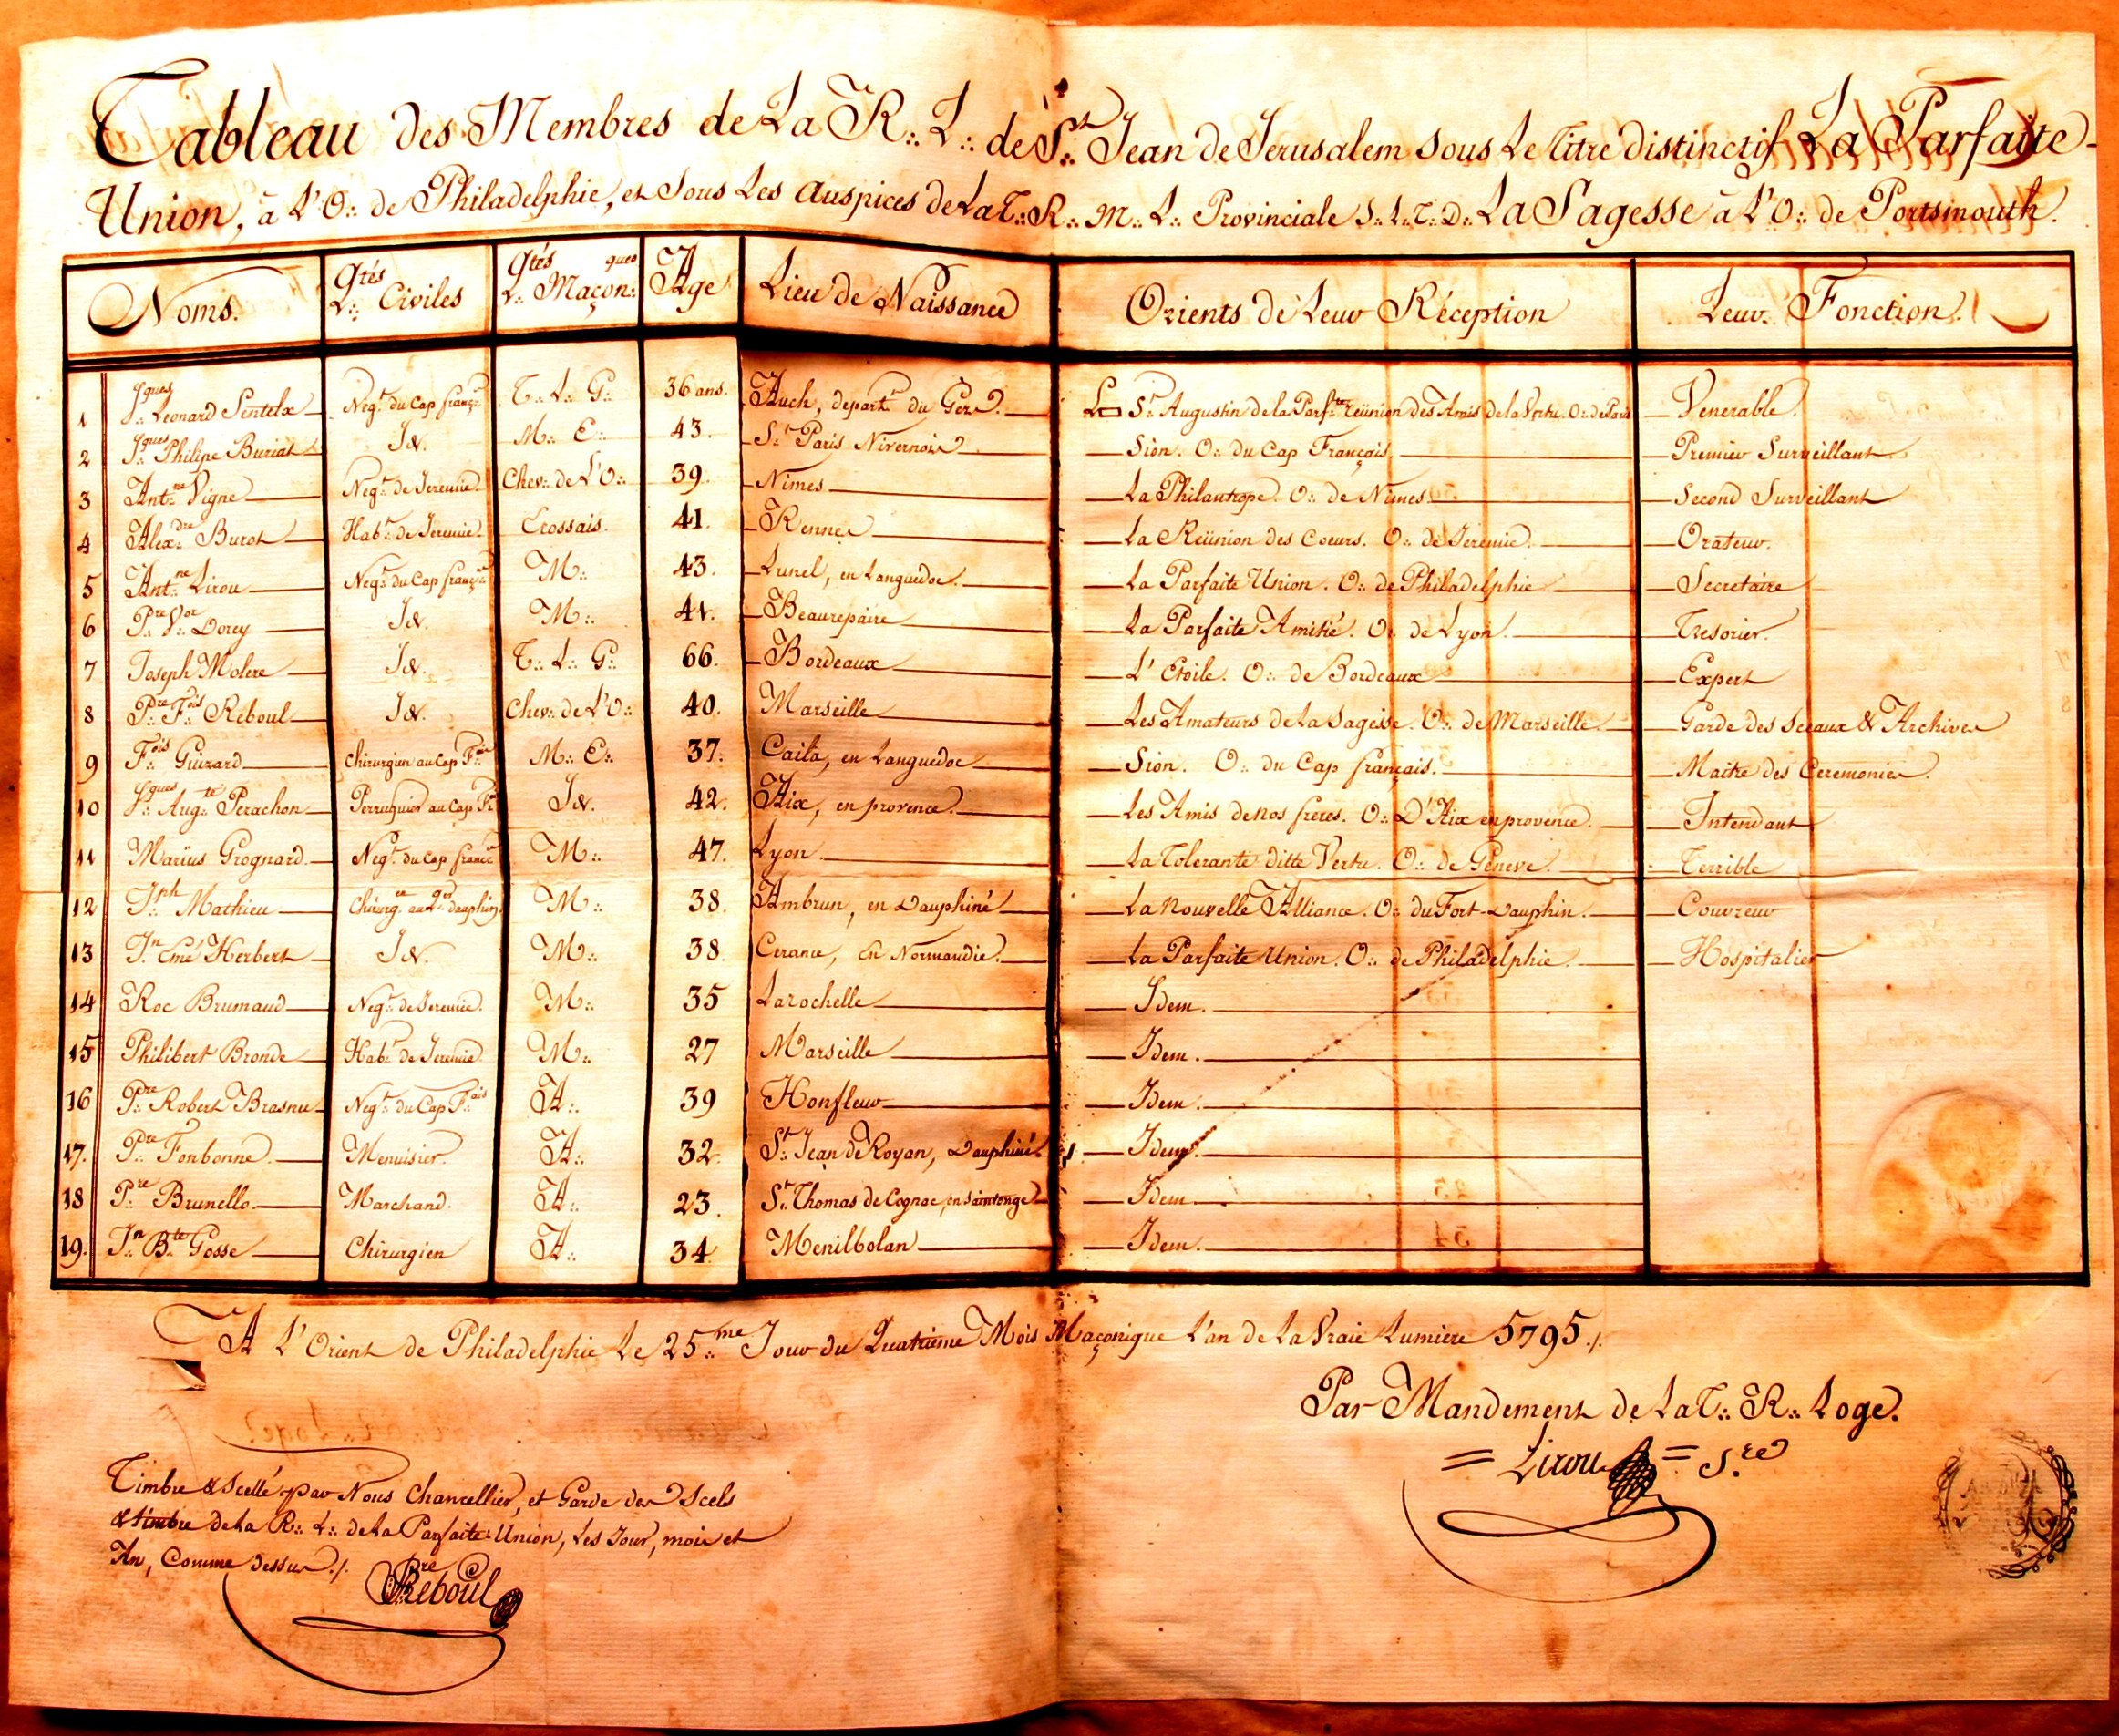 Tableau des Membres de La R∴ L∴ de St∴ Jean de Jerusalem sous Le Titre distinctif La Parfaite-
Union, à L'O∴ de Philadelphie, et sous Les auspices de La T∴ R∴ M∴ L∴ Provinciale S∴ L∴ T∴ D∴ La Sagesse à L'O∴ de Portsmouth.
Noms. Qtés L∴ Civiles Qtés L∴ Maçon∴ques Age Lieu de Naissance Orients de Leur Réception Leur Fonction.
1 Jques∴ Leonard Sentelx Negt∴ du Cap françs T∴ L∴ G∴ 36 ans. Auch, departt du Gers. L▭ St∴ Augustin de la Parfte reünion des Amis de la Vertu. O∴ de Paris Venerable.
2 Jques∴ Philipe Buriat Id. M∴ E∴ 43. St Paris Nivernois Sion. O∴ du Cap Français. Premier Surveillant
3 Antne∴ Vigne Negt∴ de Jeremie. Chev∴ de L'O∴ 39. Nimes La Philantrope. O∴ de Nimes. Second Surveillant
4 Alexdre∴ Burot Habt∴ de Jeremie. Ecossais. 41. Rennes La Reünion des Coeurs. O∴ de Jeremie. Orateur.
5 Antne∴ Lirou Negt∴ du Cap françs M∴ 43. Lunel, en Languedoc. La Parfaite Union. O∴ de Philadelphie Secretaire
6 Pre∴ Vor∴ Dorey Id. M∴ 41. Beaurepaire La Parfaite Amitié. O∴ de Lyon. Tresorier.
7 Joseph Molere Id. T∴ L∴ G∴ 66. Bordeaux L'Etoile. O∴ de Bordeaux Expert
8 Pre∴ Fois∴ Reboul Id. Chev∴ de L'O∴ 40. Marseille Les Amateurs de La Sagesse. O∴ de Marseille. Garde des Sceaux & Archives
9 Fois∴ Guizard Chirurgien au Cap F∴ M∴ E∴ 37. Caila, en Languedoc Sion. O∴ du Cap français. Maitre des Ceremonies.
10 Jques∴ Augte∴ Perachon Perruquier au Cap Id. 42. Aix, en provence. Les Amis de nos freres. O∴ D'Aix en provence. Intendant
11 Marius Grognard. Negt∴ du Cap M∴ 47. Lyon. La Tolerante ditte Vertu. O∴ de Geneve. Terrible
12 Jph∴ Mathieu Chirurg. dauphin. M∴ 38. Ambrun, en Dauphiné La Nouvelle Alliance. O∴ du Fort-Dauphin. Couvreur
13 Jn∴ Emé Herbert Id. M∴ 38. Cerance, En Normandie. La Parfaite Union. O∴ de Philadelphie. Hospitalier
14 Roc Brumaud Negt∴ de Jeremie. M∴ 35 Larochelle Idem.
15 Philibert Bronde Habt∴ de Jeremie. M∴ 27 Marseille Idem.
16 Pre∴ Robert Brasnu Negt∴ du Cap Fais∴ A∴ 39 Honfleur Idem.
17. Pre∴ Fonbonne. Menuisier. A∴ 32. St∴ Jean de Royan, Dauphiné. Idem.
18 Pre∴ Brunello. Marchand. A∴ 23. St∴ Thomas de Cognac, en Saintonge Idem
19. Jn∴ Bte∴ Gosse Chirurgien A∴ 34 Menilbolan Idem.
A L'Orient de Philadelphie Le 25∴me Jour du Quatrieme Mois Maçonique L'an de La Vraie Lumiere 5795./.
Par Mandement de La T∴ R∴ Loge.
= Lirou = S.re
Timbre & Scellé par Nous Chancellier, et Garde des Scels
& timbre de La R∴ L∴ de La Parfaite Union, Les Jour, mois et
An, Comme dessus./.
Pre∴ Reboul